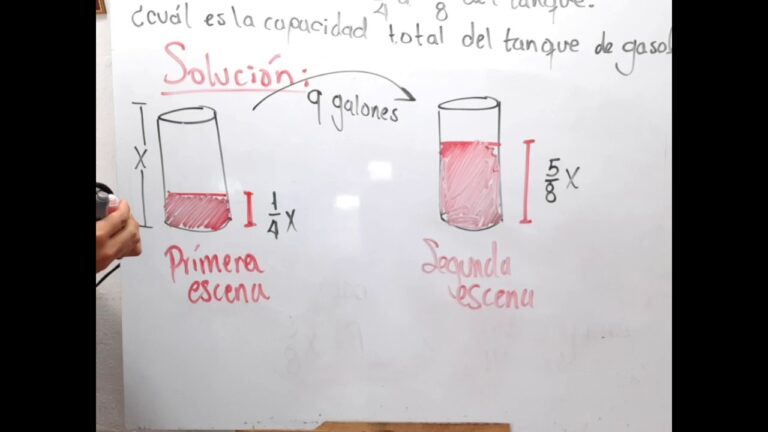 4 8 del tanque.
¿cuál es la capacidad total del tanque de gasol
Solución:
9 galones
X
1/4 X
5/8 X
Primera
escena
Segunda
escena